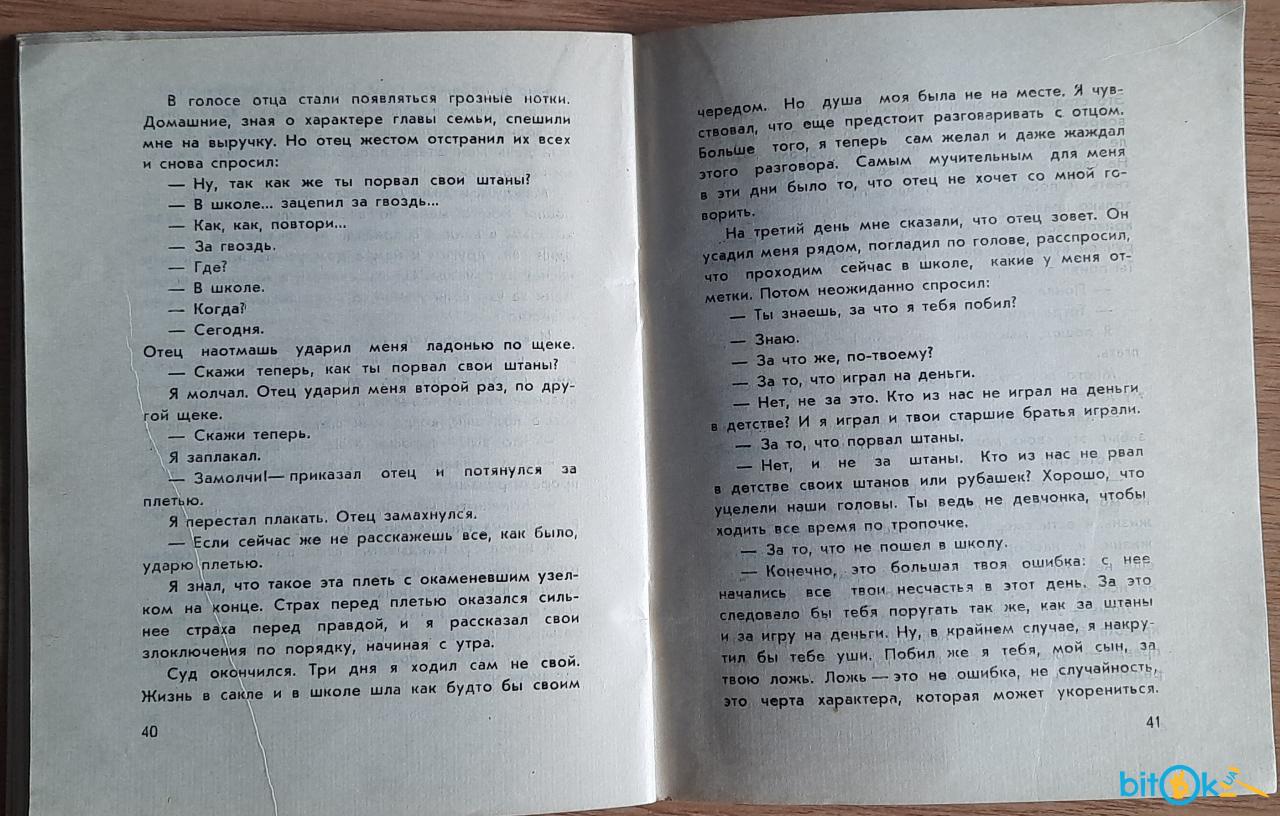 В голосе отца стали появляться грозные нотки.
Домашние, зная о характере главы семьи, спешили
мне на выручку. Но отец жестом отстранил их всех
и снова спросил:
— Ну, так как же ты порвал свои штаны?
— В школе... зацепил за гвоздь...
— Как, как, повтори...
— За гвоздь.
— Где?
— В школе.
— Когда?
— Сегодня.
Отец наотмашь ударил меня ладонью по щеке.
— Скажи теперь, как ты порвал свои штаны?
Я молчал. Отец ударил меня второй раз, по дру-
гой щеке.
— Скажи теперь.
Я заплакал.
— Замолчи!— приказал отец и потянулся за
плетью.
Я перестал плакать. Отец замахнулся.
— Если сейчас же не расскажешь все, как было,
ударю плетью.
Я знал, что такое эта плеть с окаменевшим узел-
ком на конце. Страх перед плетью оказался силь-
нее страха перед правдой, и я рассказал свои
злоключения по порядку, начиная с утра.
Суд окончился. Три дня я ходил сам не свой.
Жизнь в сакле и в школе шла как будто бы своим
40
чередом. Но душа моя была не на месте. Я чув-
ствовал, что еще предстоит разговаривать с отцом.
Больше того, я теперь сам желал и даже жаждал
этого разговора. Самым мучительным для меня
в эти дни было то, что отец не хочет со мной го-
ворить.
На третий день мне сказали, что отец зовет. Он
усадил меня рядом, погладил по голове, расспросил,
что проходим сейчас в школе, какие у меня от-
метки. Потом неожиданно спросил:
— Ты знаешь, за что я тебя побил?
— Знаю.
— За что же, по-твоему?
— За то, что играл на деньги.
— Нет, не за это. Кто из нас не играл на деньги
в детстве? И я играл и твои старшие братья играли.
— За то, что порвал штаны.
— Нет, и не за штаны. Кто из нас не рвал
в детстве своих штанов или рубашек? Хорошо, что
уцелели наши головы. Ты ведь не девчонка, чтобы
ходить все время по тропочке.
— За то, что не пошел в школу.
— Конечно, это большая твоя ошибка: с нее
начались все твои несчастья в этот день. За это
следовало бы тебя поругать так же, как за штаны
и за игру на деньги. Ну, в крайнем случае, я накру-
тил бы тебе уши. Побил же я тебя, мой сын, за
твою ложь. Ложь — это не ошибка, не случайность,
это черта характера, которая может укорениться.
41
bitOk UA